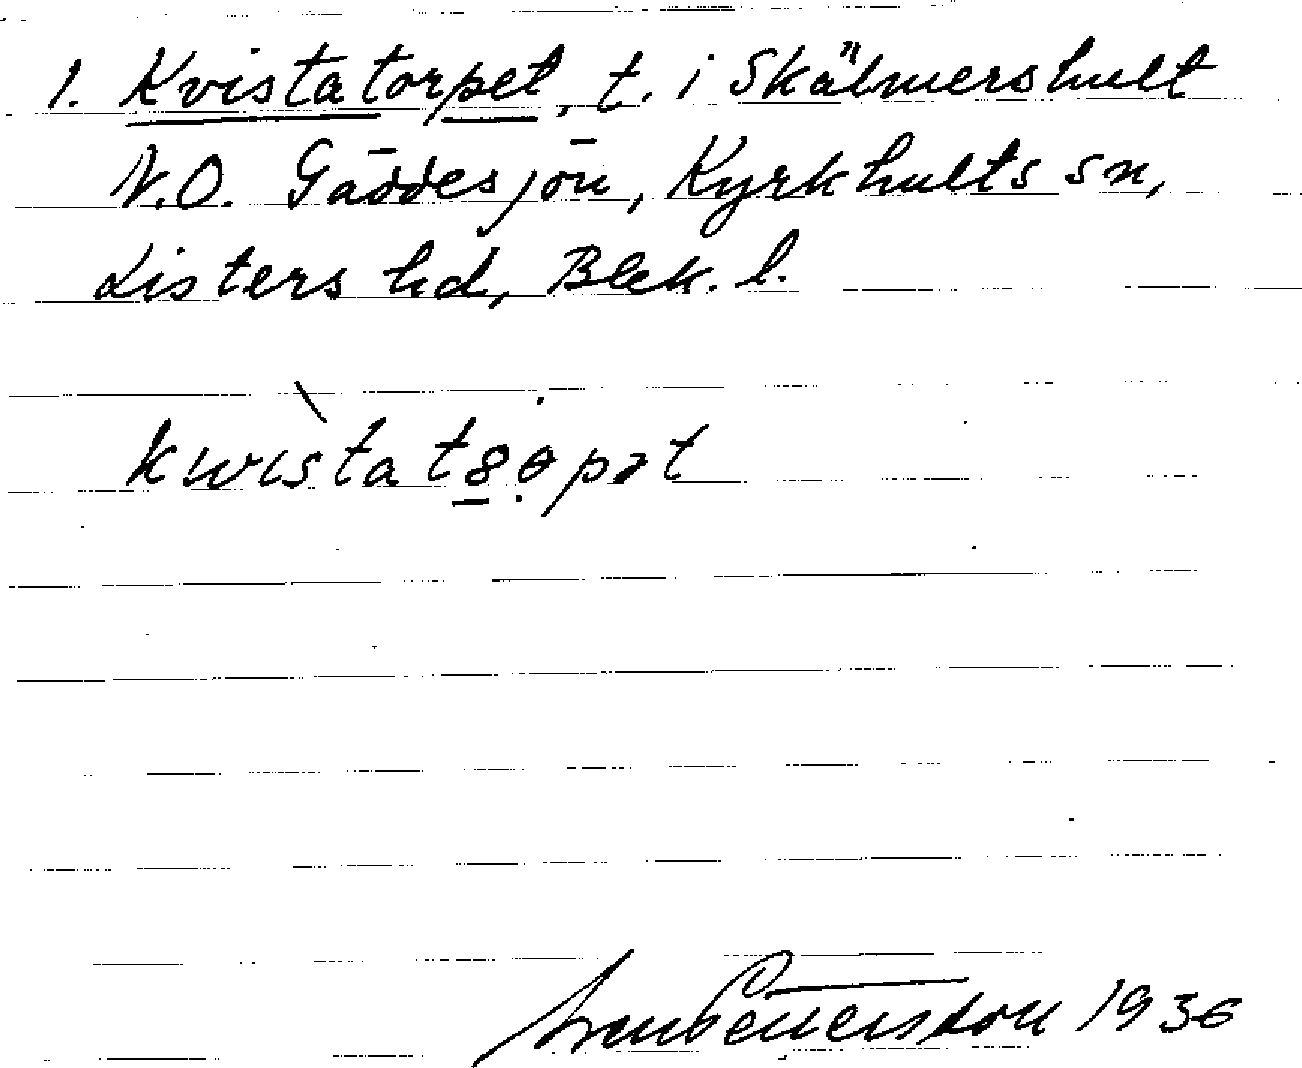 1. Kvistatorpet, t. i Skälmershult
N.O. Gäddesjön, Kyrkhults sn,
Listers hd, Blek. l.
kwistat8ɵpət
1936